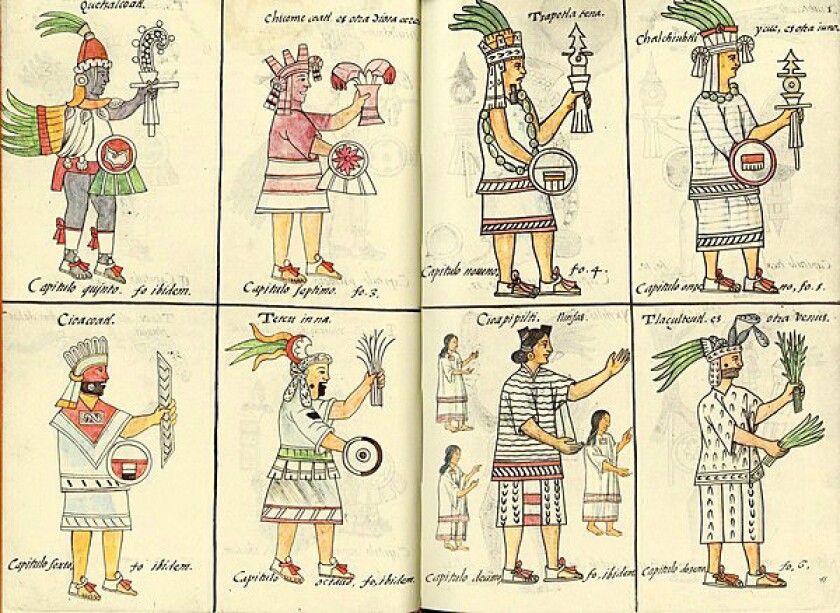 Quetzalcoatl.
Capitulo quinto. fo ibidem.
Chicome coatl. es otra Diosa
Capitulo septimo. fo. 3.
Tzapotla tena.
Capitulo noueno, fo. 4.
Chalchiuhtli ycue, es otra iuno.
Capitulo fo. 5.
Cioacoatl.
Capitulo sexto, fo ibidem.
Teteu inna.
Capitulo octauo, fo, ibidem.
Cioapipilti. Ninfas.
Capitulo decimo, fo, ibidem
Tlaçulteutl. es otra Venus.
Capitulo fo, 6.